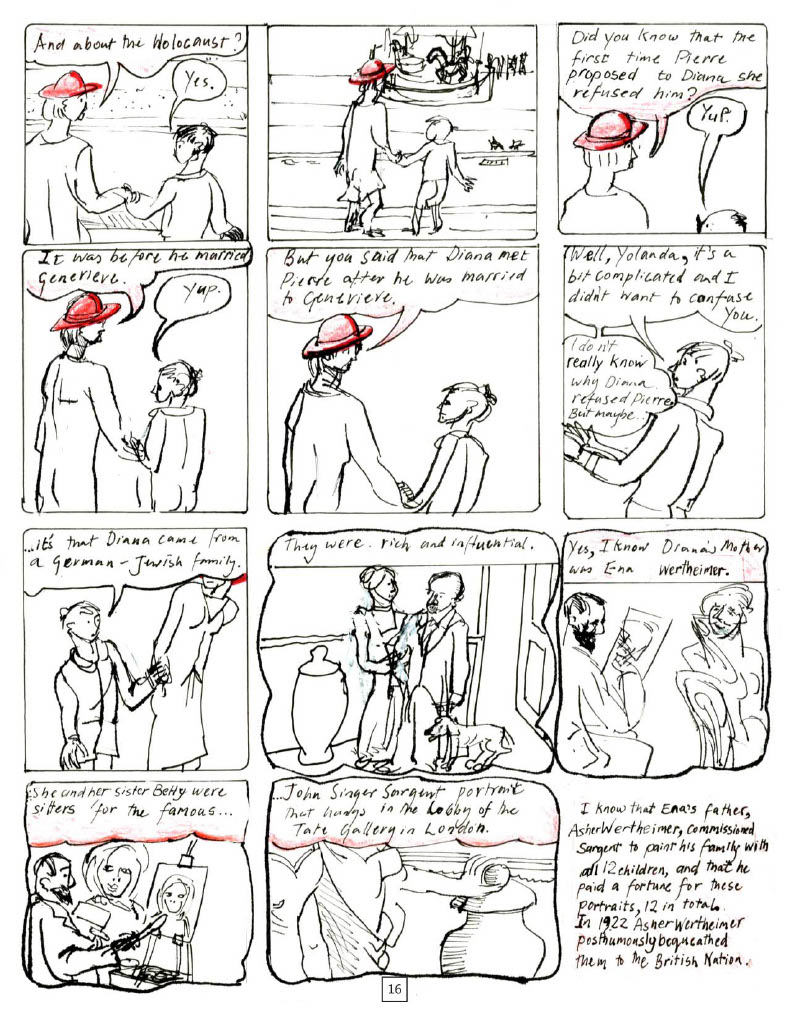 And about the Holocaust?
Yes.
Did you know that the
first time Pierre
proposed to Diana she
refused him?
Yup.
It was before he married
Genevieve.
Yup.
But you said that Diana met
Pierre after he was married
to Genevieve.
Well, Yolanda, it's a
bit complicated and I
didn't want to confuse
you.
I don't
really know
why Diana
refused Pierre.
But maybe...
...it's that Diana came from
a German-Jewish family.
They were rich and influential.
Yes, I know Diana's Mother
was Ena Wertheimer.
She and her sister Betty were
sitters for the famous...
...John Singer Sargent portrait
that hangs in the Lobby of the
Tate Gallery in London.
I know that Ena's father,
Asher Wertheimer, commissioned
Sargent to paint his family with
all 12 children, and that he
paid a fortune for these
portraits, 12 in total.
In 1922 Asher Wertheimer
posthumously bequeathed
them to the British Nation.
16